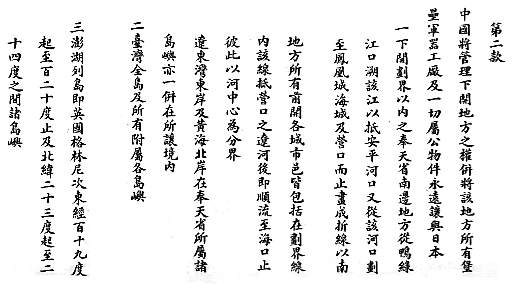 第二款
中國將管理下開地方之權併將該地方所有堡
壘軍器工廠及一切屬公物件永遠讓與日本
一下開劃界以內之奉天省南邊地方從鴨綠
江口溯該江以抵安平河口又從該河口劃
至鳳凰城海城及營口而止畫成折線以南
地方所有前開各城市邑皆包括在劃界線
內該線抵營口之遼河後即順流至海口止
彼此以河中心為分界
遼東灣東岸及黃海北岸在奉天省所屬諸
島嶼亦一併在所讓境內
二臺灣全島及所有附屬各島嶼
三澎湖列島即英國格林尼次東經百十九度
起至百二十度止及北緯二十三度起至二
十四度之間諸島嶼